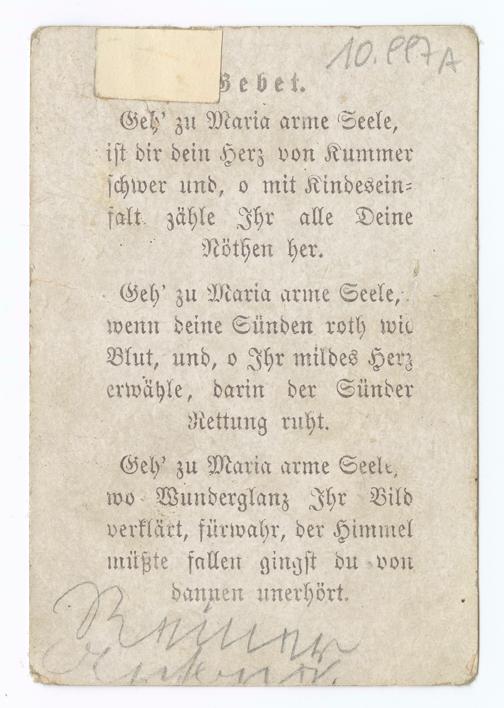 10.997A
Gebet.
Geh' zu Maria arme Seele,
ist dir dein Herz von Kummer
schwer und, o mit Kindesein-
falt zähle Ihr alle Deine
Nöthen her.
Geh' zu Maria arme Seele,
wenn deine Sünden roth wie
Blut, und, o Ihr mildes Herz
erwähle, darin der Sünder
Rettung ruht.
Geh' zu Maria arme Seele,
wo Wunderglanz Ihr Bild
verklärt, fürwahr, der Himmel
müßte fallen gingst du von
dannen unerhört.